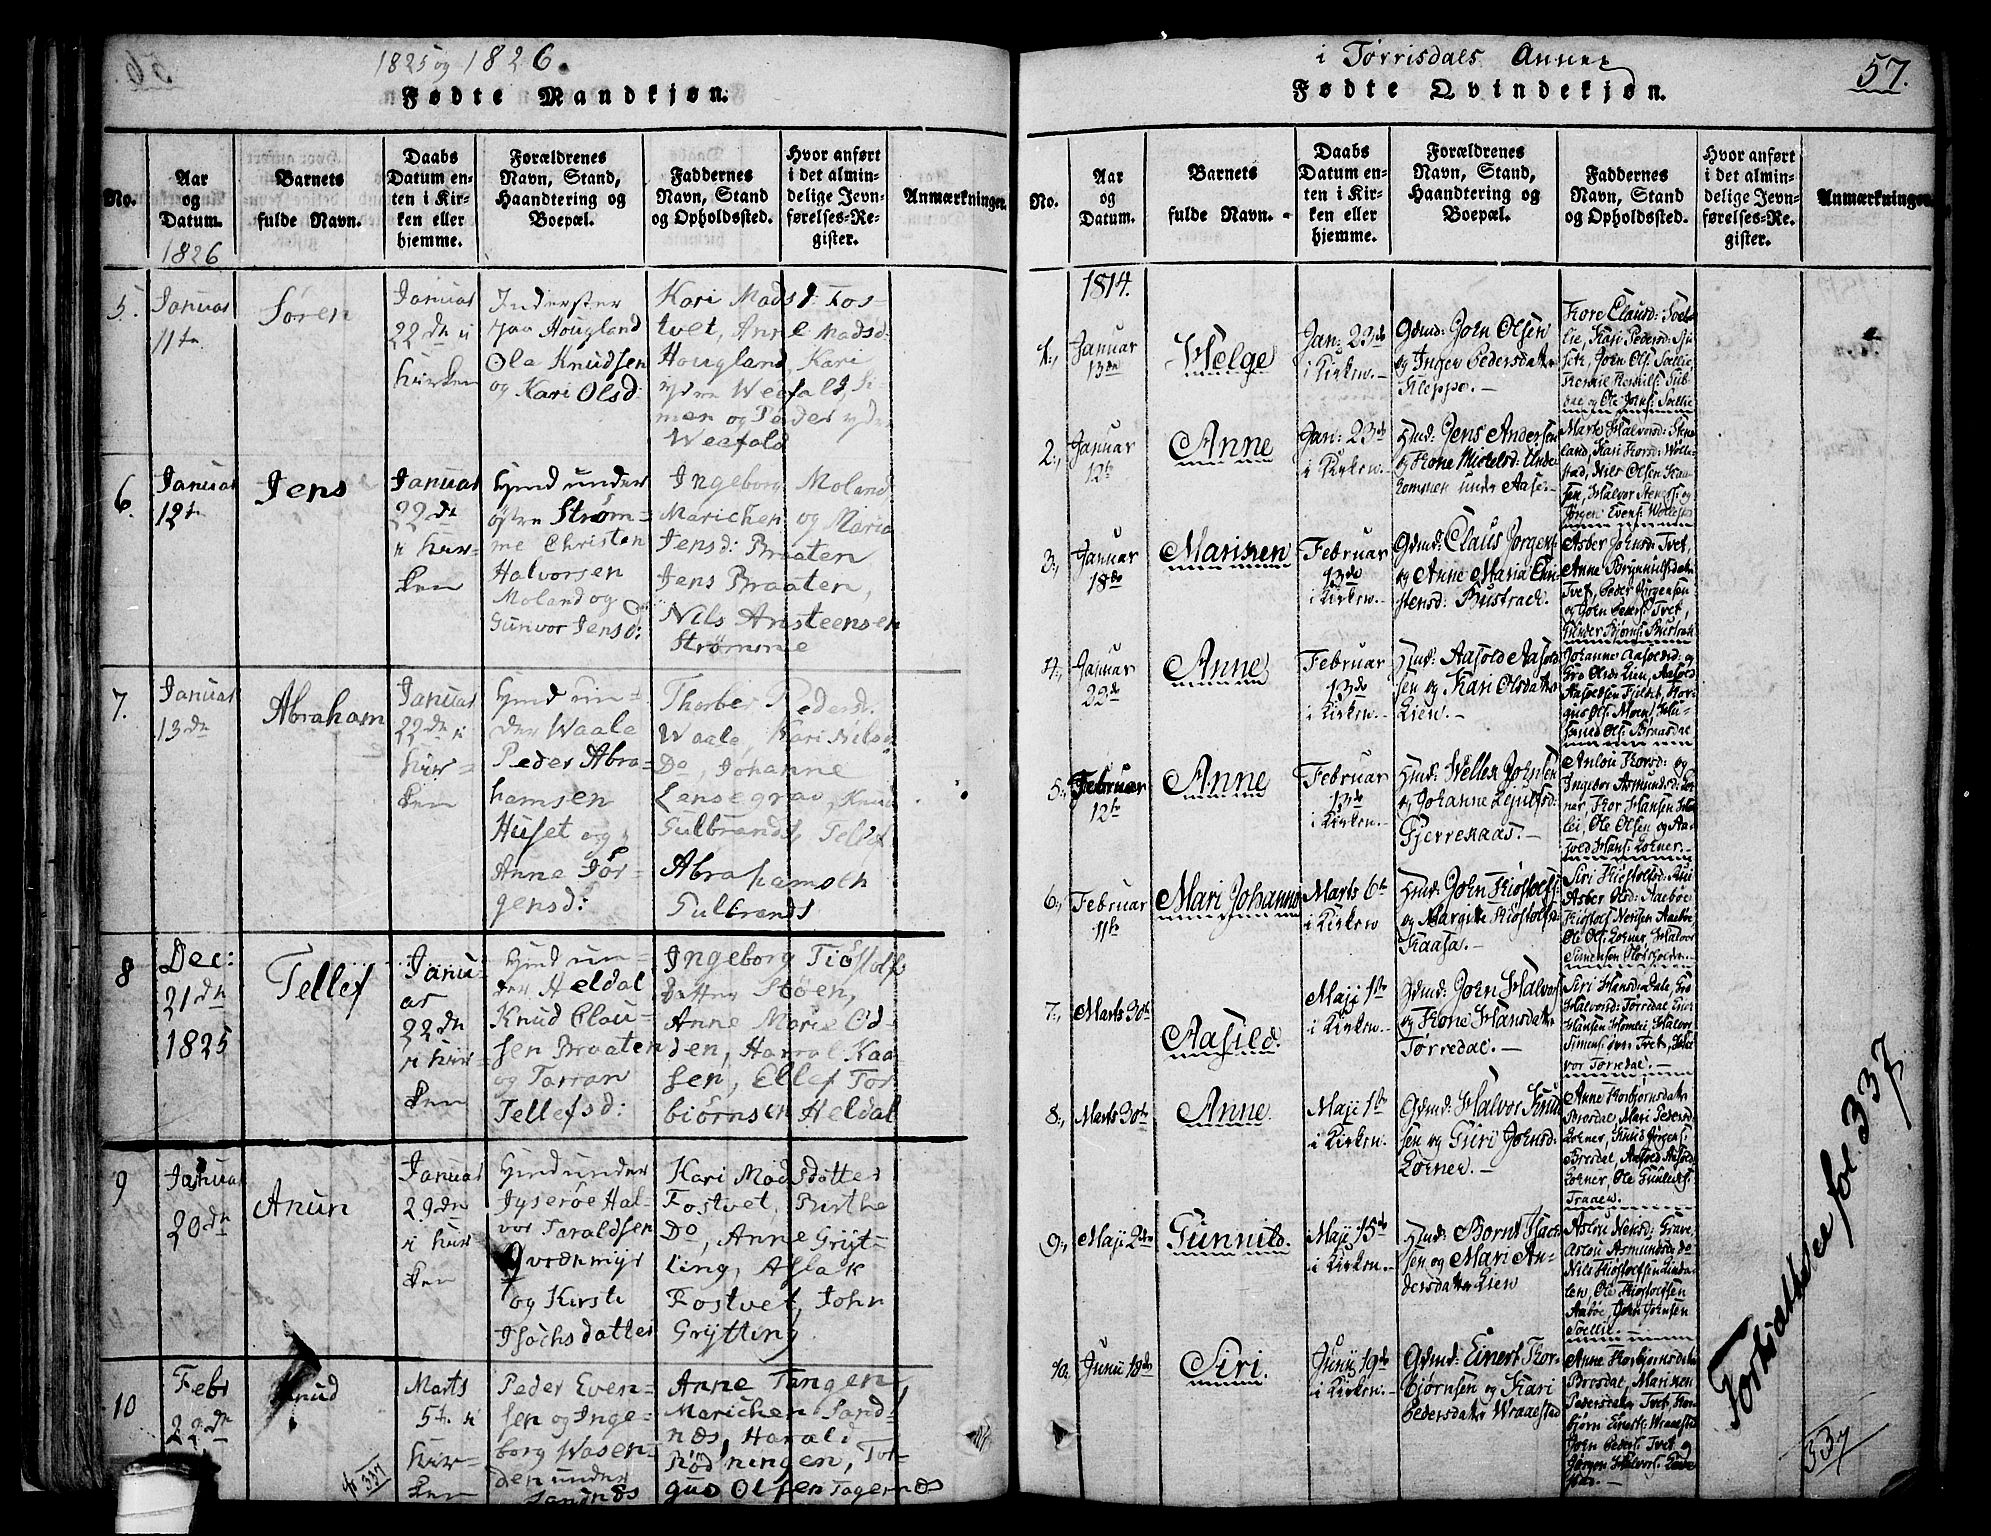 1825 og 1826.
Fødte Mandkjøn.
No.
Aar
og
Datum.
1826
Barnets
fulde Navn.
Daabs
Datum en-
ten i Kir-
ken eller
hjemme.
Forældrenes
Navn, Stand,
Haandtering og
Boepæl.
Faddernes
Navn, Stand
og Opholdssted.
Hvor anført
i det almin-
delige Jevn-
førelses-Re-
gister.
Anmærkninger.
5.
Januar
11te
Søren
Januar
22dn i
Kirken
Inderster
paa Hougland
Ole Knudsen
og Kari Olsd:
Kari Madsd: Fos
tvet, Anne Madsd:
Hougland, Kari
ydre Weefald,
og Peder ydre
Weefald
6.
Januar
12te
Jens
Januar
22dn
i Kir-
ken
Hmd under
østre Strøm-
me Christen
Halvorsen
Moland og
Gunvor Jensd:
Ingeborg Moland
Marichen og Maria
Jensd: Braaten
Jens Braaten,
Nils Aristeensen
Strømme
7.
Januar
13dn
Abraham
Januar
22dn i
Kir-
ken
Hmd un-
der Waale
Peder Abra-
hamsen
Huset og
Anne Jør-
gensd:
Thorber Pedersd.
Waale, Kari Nilsd
Do, Johanne
Lensegrav, Knud
Gulbrands, Tellef
Abrahams og
Gulbrands
8
Dec:
21dn
1825
Tellef
Janu-
ar
22dn
i Kir-
ken
Hmd un-
der Heldal
Knud Clau-
sen Braaten
og Tarran
Tellefsd:
Ingeborg Tiøstolfs
Datter Støen,
Anne Marie Od-
den, Harral Kaa-
sen, Ellef Tor-
biørnsen Heldal
9
Januar
20dn
Anun
Januar
29dn
i Kir-
ken
Hmd under
Jyserøe Hal-
vor Taraldsen
Qvædnmyr
og Kirsti
Isachsdatter
Kari Madsdotter
Fostvet, Birthe
Do, Anne Gryt-
ting, Aslak
Fostvet, John
Grytting.
10
Febr
22dn
Knud
Marts
5te i
Kir-
ken
Peder Even-
sen og Inge-
borg Wasen-
den under
Sandnes
Anne Tangen
Marichen Sand-
næs, Harald
Rødningen, Tor-
gus Olsen Tagernæs
337
i Tørrisdals Annex
57.
Fødte Qvindekjøn.
No.
Aar
og
Datum.
Barnets
fulde Navn.
Daabs
Datum en-
ten i Kir-
ken eller
hjemme.
Forældrenes
Navn, Stand,
Haandtering og
Boepæl.
Faddernes
Navn, Stand
og Opholdssted.
Hvor anført
i det almin-
delige Jevn-
førelses-Re-
gister.
Anmærkninger.
1814.
1.,
Januar
13de
Helge
Jan: 23de
i Kirken.-
Gdmd: John Olsen
og Inger Pedersdatter
Kleppe.-
Tore Clausd: Soel-
lie, Kari Pedersd:
John Ols: Soellie
og Ole Johns: Soellie
2.,
Januar
12te
Anne
Jan: 23de
i Kirken.-
Hmd: Jens Andersen
og Tone Mickelsd: Under
kommen under Aase.-
Nils Olsen
Halvor
Jørgen Evens:
3.,
Januar
18de
Mariken
Februar
13de
i Kirken.-
Gdmd: Claus Jørgens:
og Anne Maria Chri-
stensd: Bustrack.
Asber Johnsd: Tvet,
Anne Brynnilfsdatter
Tvet, Peder Jørgensen
og John Peders: Tvet,
Bjørns: Bustrack
4.,
Januar
22de
Anne
Februar
13de
i Kirken.-
Hmd: Aasold Aasold-
sen og Kari Olsdatter
Lien.-
Johanne Aasoldsd: og
Gro Olsd: Lien, Aasold
Aasoldsen Fjeldet, Tor-
gus Ols: Moen,
Ols:
5.,
Februar
12te
Anne
Februar
13de
i Kirken.-
Hmd: Wellex Johnsen
og Johanne Lejulfsd:
Fjerrekaas.-
Anlou Torsd: og
Ingebor Asmundsd:
Tor Hansen
Ole Olsen og Aa-
sold Hans:
6.,
Februar
11te
Mari Johanne
Marts 6te
i Kirken
Hmd: John Kiøstolfs:
og Margite Kiøstolfsd:
Kaasa.-
Siri Kiøstolfsd:
Asber Olsd: Aaeboe
Kiøstolf Nerisen Aaeboe
Ole Ols: Halvor
Simensen
7.,
Marts 30te
Aasild.
Maji 1te
i Kirken.-
Gdmd: John Halvors:
og Tone Hansdatter
Tørredal.-
Siri Hansd: Dale, Gro
Halvorsd: Tørredal
Hansen
Tvet, Hal-
vor Tørredal.-
8.,
Marts 30te
Anne.
Maji 1te
i Kirken.
Gdmd: Halvor Knud-
sen og Guri Johnsd:
Anne Torbjørnsdatter
Bresdal, Mari Pedersd:
Knud Jørgens:
Bresdal, Aasold Aasold:
Ole Gunleiks:
Traaen.
9.,
Maji 2den
Gunnild.
i Maji 15de
i Kirken.
Hmd: Bernt Isach-
sen og Mari An-
dersdatter Lien
Aslou Nerisd: Grave,
Aslou Asmundsd:
Nils Kiøstolfsen Linda-
len, Ole Kiøstolfsen
Aaboe, John Johnsen
Soellie.-
10.
Junii 18de
Siri.
Junij 19de
i Kirken.-
Gdmd: Einert Tor-
bjørnsen og Kari
Pedersdatter Wraaestad
Anne Torbjørnsdatter
Bresdal, Mariken
Pedersdatter Tvet, Tor-
bjørn Einerts: Wraaestad
John Peders: Tvet og
Jørgen Halvors:
Fortsættes fol. 337
337